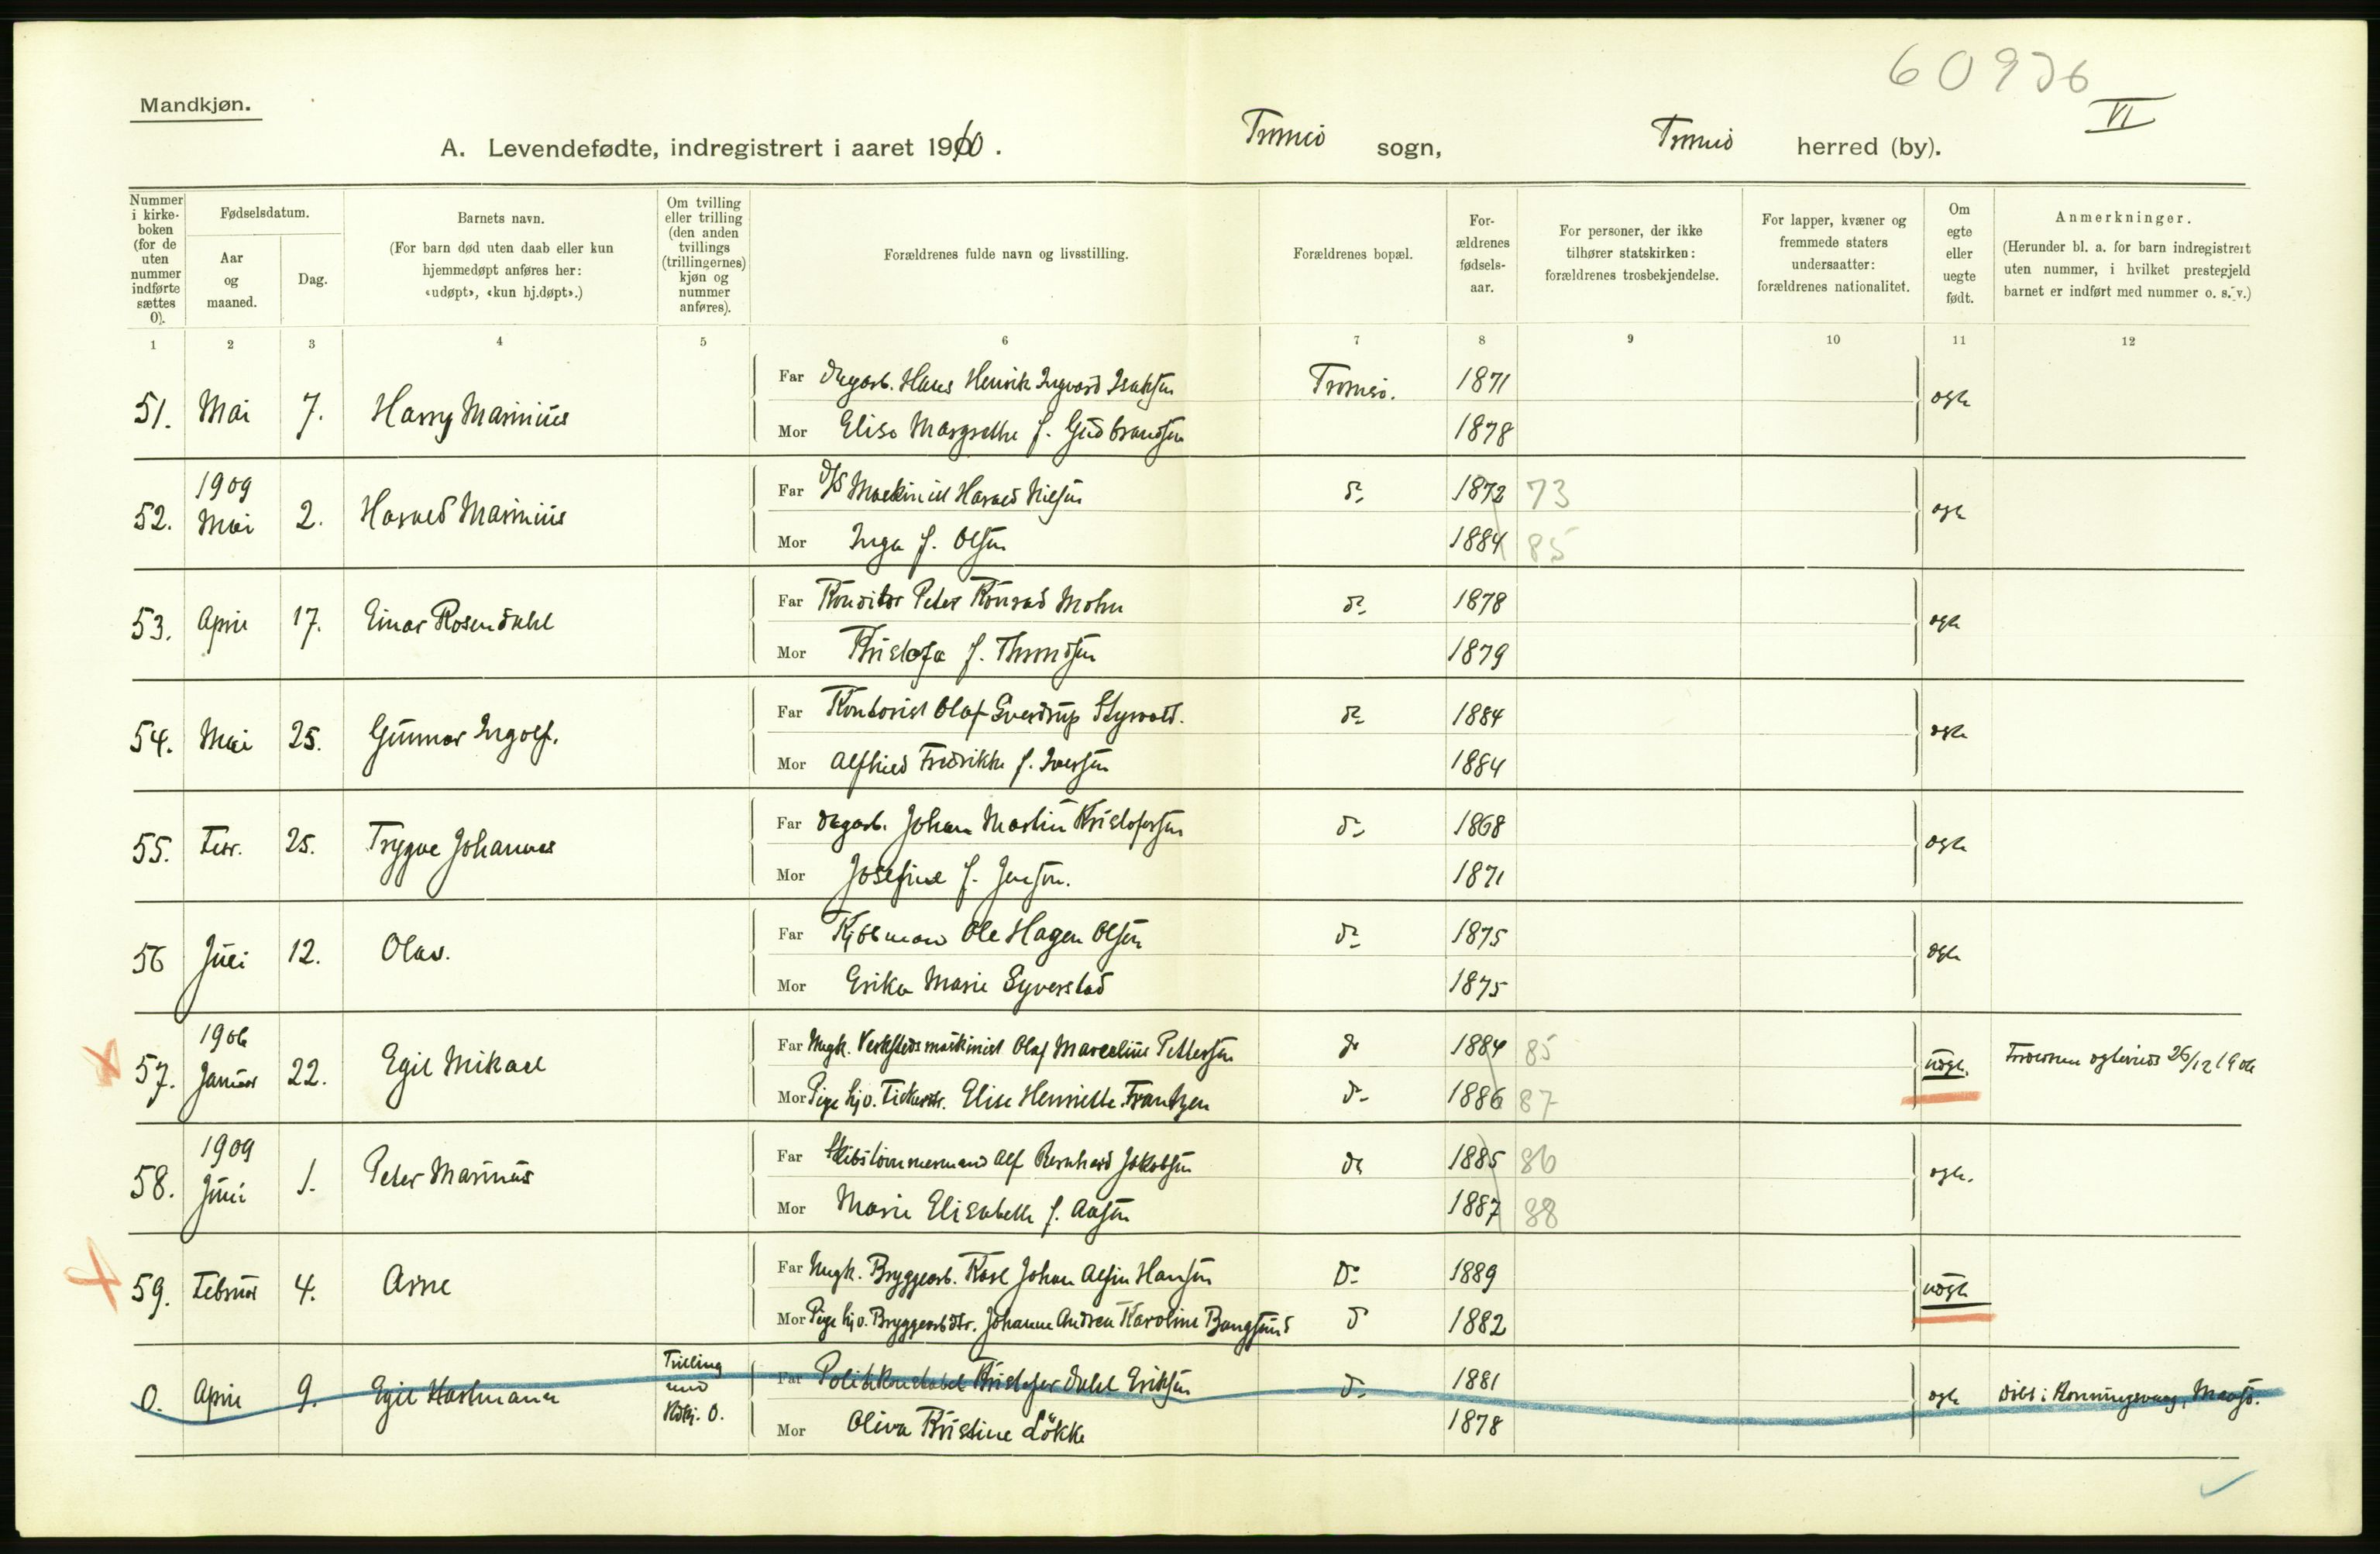 60936
VI
Mandkjøn.
A. Levendefødte, indregistrert i aaret 1910.
Tromsö sogn, Tromsö herred (by).
Nummer i kirke-boken (for de uten nummer indførte sættes 0).
Fødselsdatum.
Aar og maaned.
Dag.
Barnets navn.
(For barn død uten daab eller kun hjemmedøpt anføres her: «udøpt», «kun hj.døpt».)
Om tvilling eller trilling (den anden tvillings (trillingernes) kjøn og nummer anføres).
Forældrenes fulde navn og livsstilling.
Forældrenes bopæl.
For-ældrenes fødsels-aar.
For personer, der ikke tilhører statskirken: forældrenes trosbekjendelse.
For lapper, kvæner og fremmede staters undersaatter: forældrenes nationalitet.
Om egte eller uegte født.
Anmerkninger.
(Herunder bl. a. for barn indregistrert uten nummer, i hvilket prestegjeld barnet er indført med nummer o. s. v.)
1 2 3 4 5 6 7 8 9 10 11 12
51. Mai 7. Harry Marinius
Far Dagarb. Hans Henrik Ingvard Isaksen Tromsö. 1871
Mor Elise Margrethe f. Gudbrandsen 1878
ægte
52. 1909 Mai 2. Harald Marinius
Far D/S Maskinist Harald Nilsen do 1872 73
Mor Inga f. Olsen 1884 85
ægte
53. April 17. Einar Rosendahl
Far Konditor Peter Konrad Mohn do 1878
Mor Kristofa f. Thomdsen 1879
ægte
54. Mai 25. Gunnar Ingolf.
Far Kontorist Olaf Sverdrup Styrvold. do 1884
Mor Alfhild Fredrikke f. Iversen 1884
ægte
55. Febr. 25. Trygve Johannes
Far Dagarb. Johan Martin Kristofersen do 1868
Mor Josefine f. Jensen. 1871
ægte
56 Juli 12. Olav.
Far Kjöbmand Ole Hagen Olsen do 1875
Mor Erika Marie Syverstad 1875
ægte
57. 1906 Januar 22. Egil Mikael
Far Ungk. Verkstedsmaskinist Olaf Marcelius Pettersen do 1884 85
Mor Pige hjv. Elise Henriette Frantzen do 1886 87
uægte. Forældrene egteviede 26/12 1906
58. 1909 Juni 1. Peter Marinus
Far Skibstömmermand Alf Bernhard Jakobsen do 1885 86
Mor Marie Elisabeth f. Aasen 1887 88
ægte.
59. Februar 4. Arne
Far Ungk. Bryggearb. Karl Johan Alfin Hansen Do 1889
Mor Pige hjv. Bryggearbdtr. Johanne Andrea Karoline Bangsund do 1882
uægte
0. April 9. Egil Hartmann Tvilling med Kvkj. 0.
Far Politikonstabel Kristofer Dahl Eriksen do 1881
Mor Oliva Kristine Lökke 1878
ægte Döbt i Honningsvaag, Maasö.